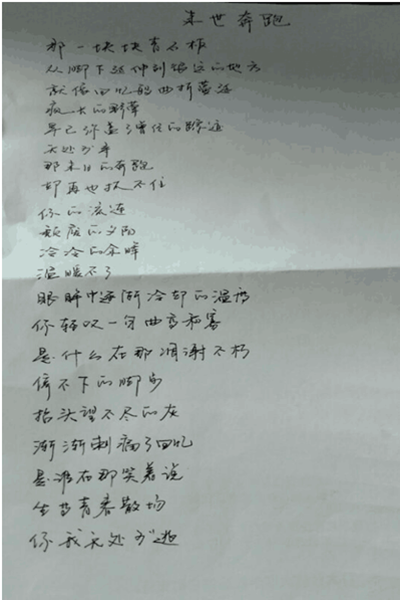 来世奔跑
那一块块青石板
从脚下延伸到遥远的地方
就像回忆般曲折蔓延
疯长的野草
早已掩盖了曾经的踪迹
无处可寻
那来日的奔跑
却再也抓不住
你的流连
颓废的夕阳
冷冷的余晖
温暖不了
眼眸中逐渐冷却的温度
你轻叹一句曲高和寡
是什么在那凋谢不朽
停不下的脚步
抬头望不尽的灰
渐渐刺痛了回忆
是谁在那笑着说
生当青春散场
你我无处可逃